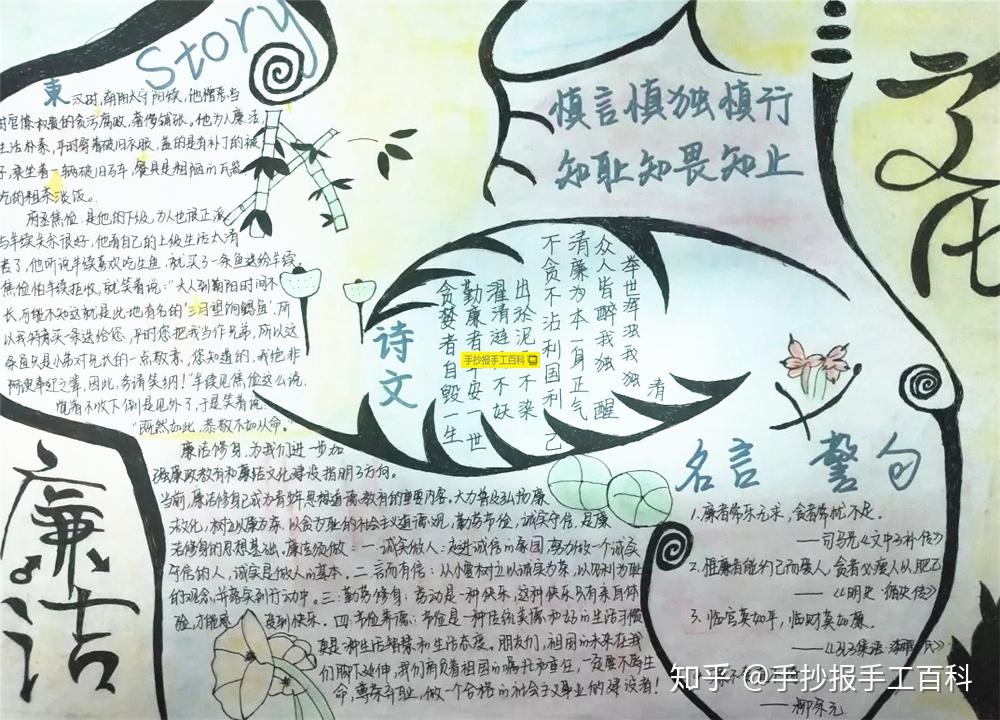 Story
東汉时,南阳太守羊续,他憎恶当
时官僚权贵的贪污腐败,奢侈铺张。他为人廉洁,
生活朴素,平时穿着破旧衣服,盖的是有补丁的被
子,乘坐着一辆破旧马车,餐具是粗陋的瓦器
吃的粗茶淡饭。
府丞焦俭,是他的下级,为人也很正派
与羊续关系很好,他看自己的上级生活太清
苦了,他听说羊续喜欢吃生鱼,就买了一条鱼送给羊续
焦俭怕羊续拒收,就笑着说:"大人到南阳时间不
长,可能不知这就是此地有名的'三月望饷鲤鱼',所
以我特意买一条送给您,平时您把我当作兄弟,所以这
条鱼只是小弟对兄长的一点敬意,您知道的,我绝非
阿谀奉迎之辈,因此,务请笑纳!"羊续见焦俭这么说,
觉着不收下倒是见外了,于是笑着说:
"既然如此,恭敬不如从命。"
慎言慎独慎行
知耻知畏知止
文化
诗文
举世浑浊我我独清
众人皆醉我独醒
清廉为本一身正气
不贪不沾利国利己
出淤泥 不染
濯清涟 不妖
勤廉者 平安一世
贪婪者自毁一生
手抄报手工百科
名言警句
1.廉者常乐无求,贪者常忧不足。
——司马光《文中子补传》
2.惟廉者能约己而爱人,贪者必瘦人以肥己
——《明史·循吏传》
3.临官莫如平,临财莫如廉。
——柳宗元
廉洁
廉洁修身,为我们进一步加
强廉政教育和廉洁文化建设指明了方向。
当前,廉洁修身已成为青少年思想道德教育的重要内容。大力普及弘扬廉
洁文化,树立以廉为荣,以贪为耻的社会主义道德观,勤劳节俭,诚实守信,是廉
洁修身的思想基础,廉洁须做:一.诚实做人:走进诚信的家园,努力做一个诚实
守信的人,诚实是做人的基本。二.言而有信:从小要树立以诚实为荣,以见利为耻
的观念,并落实到行动中。三:勤劳修身:劳动是一种快乐,这种快乐只有亲身体
验,才能感 受到快乐。四.节俭养德:节俭是一种传统美德和好的生活习惯
更是一种生活智慧和生活态度。朋友们,祖国的未来在我
们脚下延伸,我们肩负着祖国的嘱托和责任,一定要不辱生
命,尊荣弃耻,做一个合格的社会主义事业的建设者!
知乎 @手抄报手工百科